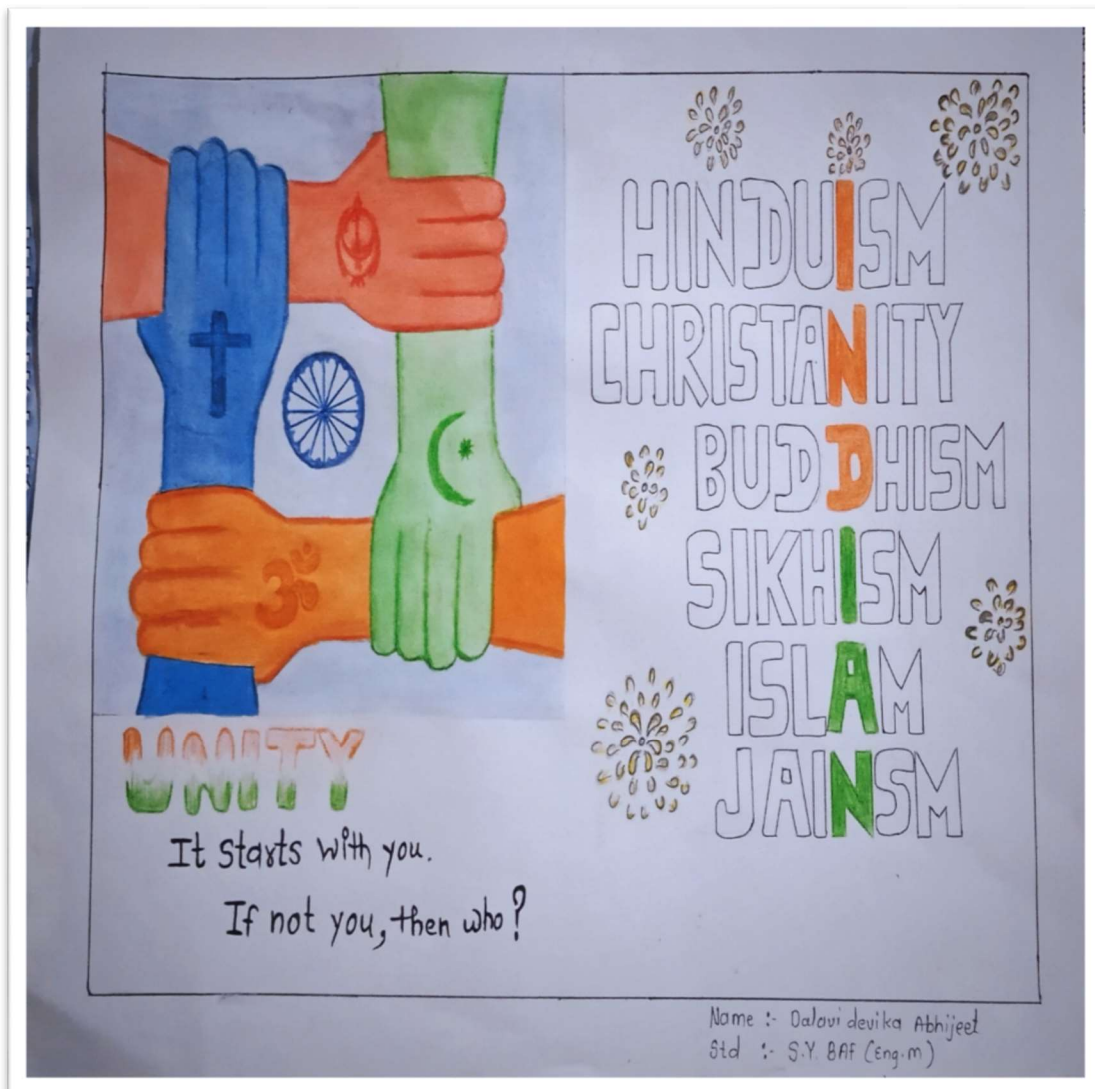 HINDUISM
CHRISTANITY
BUDDHISM
SIKHISM
ISLAM
JAINSM
UNITY
It starts with you.
If not you, then who?
Name :- Dalavi devika Abhijeet
Std :- S.Y. BAF (Eng.m)